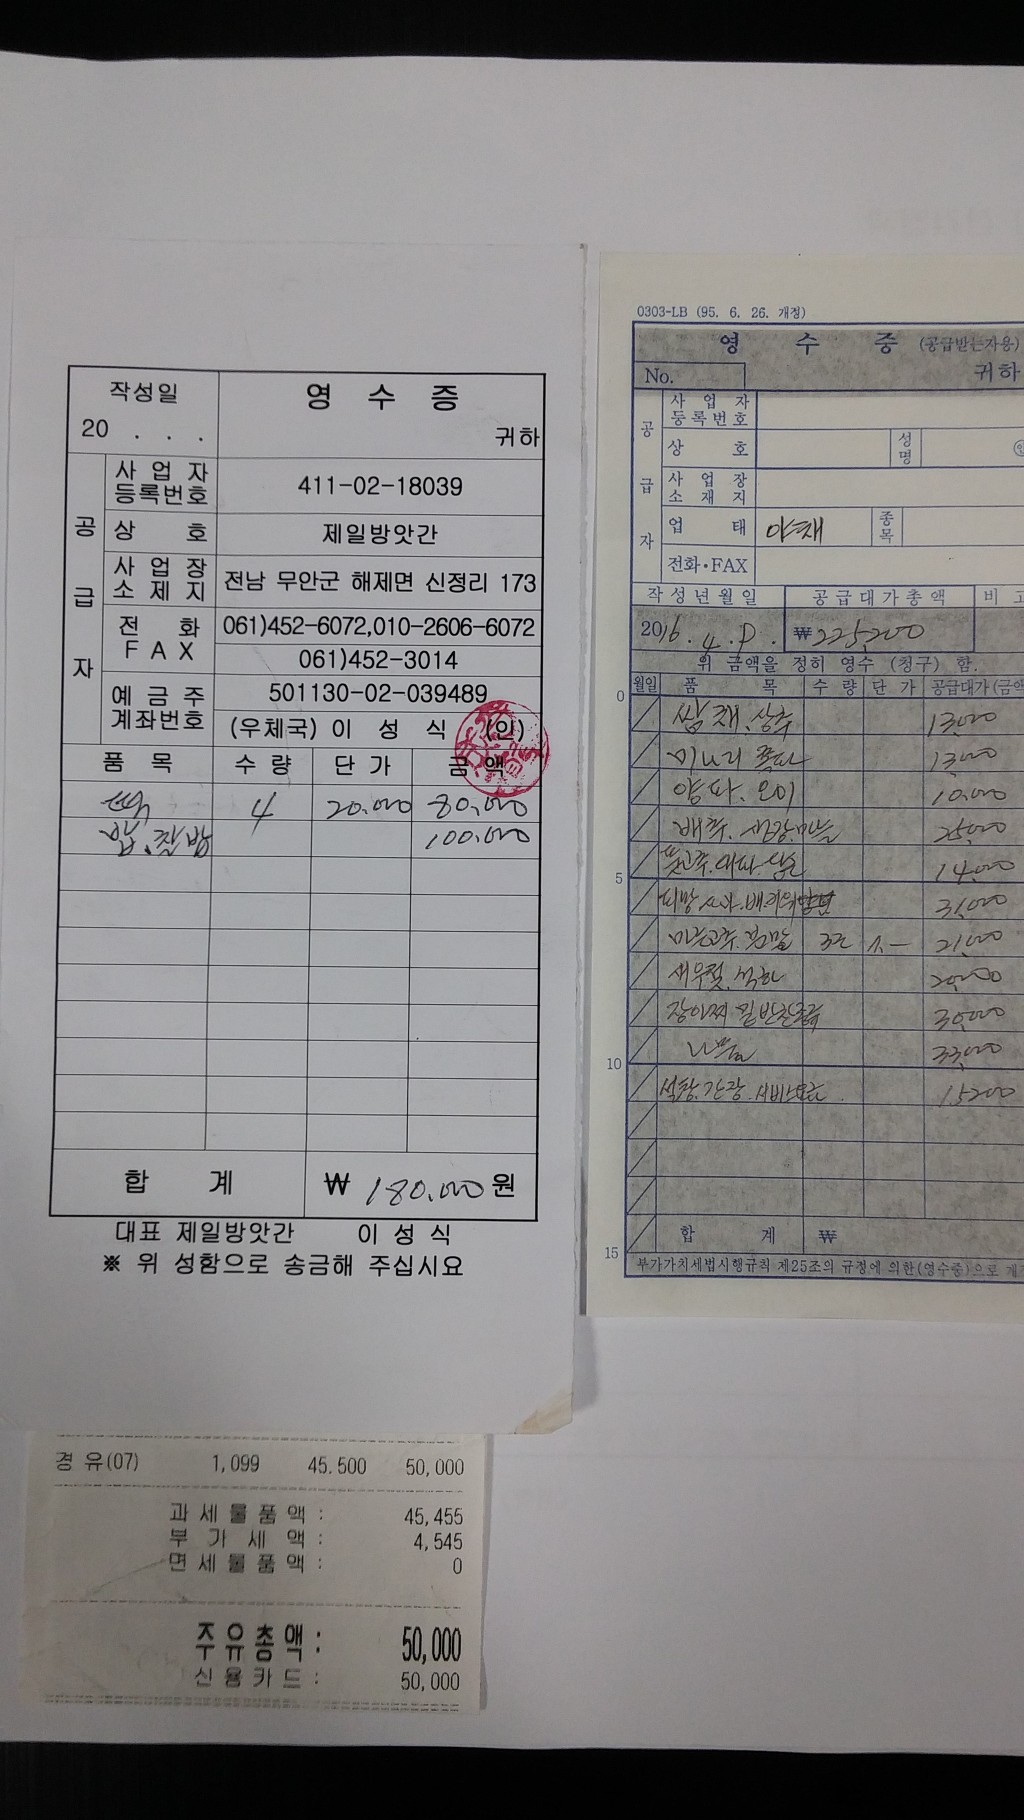 작성일
20 . . .
영 수 증
귀하
공 급 자
사 업 자 등록번호 411-02-18039
상 호 제일방앗간
사 업 장 소 제 지 전남 무안군 해제면 신정리 173
전 화 061)452-6072,010-2606-6072
F A X 061)452-3014
예 금 주 501130-02-039489
계좌번호 (우체국) 이 성 식 (인)
품 목 수 량 단 가 금 액
떡 4 20,000 80,000
밥, 찰밥 100,000
합 계 ₩ 180,000 원
대표 제일방앗간 이 성 식
※ 위 성함으로 송금해 주십시요
0303-LB (95. 6. 26. 개정)
영 수 증 (공급받는자용)
No. 귀하
공 급 자
사 업 자 등록번호
상 호 성 명
사 업 장 소 재 지
업 태 야채 종 목
전화·FAX
작 성 년 월 일 공 급 대 가 총 액 비 고
2016. 4. ₩ 225,200
위 금액을 정히 영수 (청구) 함.
월일 품 목 수 량 단 가 공급대가(금액
0
쌈채, 상추 13,000
미나리 쪽파 13,000
양파. 오이 10,000
배추. 생강. 마늘 25,000
5
풋고추. 대파. 당근 14,000
31,000
21,000
새우젓. 20,000
장아찌 밑반찬 30,000
10
나물 33,000
15200
합 계 ₩
15
부가가치세법시행규칙 제25조의 규정에 의한(영수증)으로 개정
경 유(07) 1,099 45.500 50,000
과 세 물 품 액 : 45,455
부 가 세 액 : 4,545
면 세 물 품 액 : 0
주 유 총 액 : 50,000
신 용 카 드 : 50,000